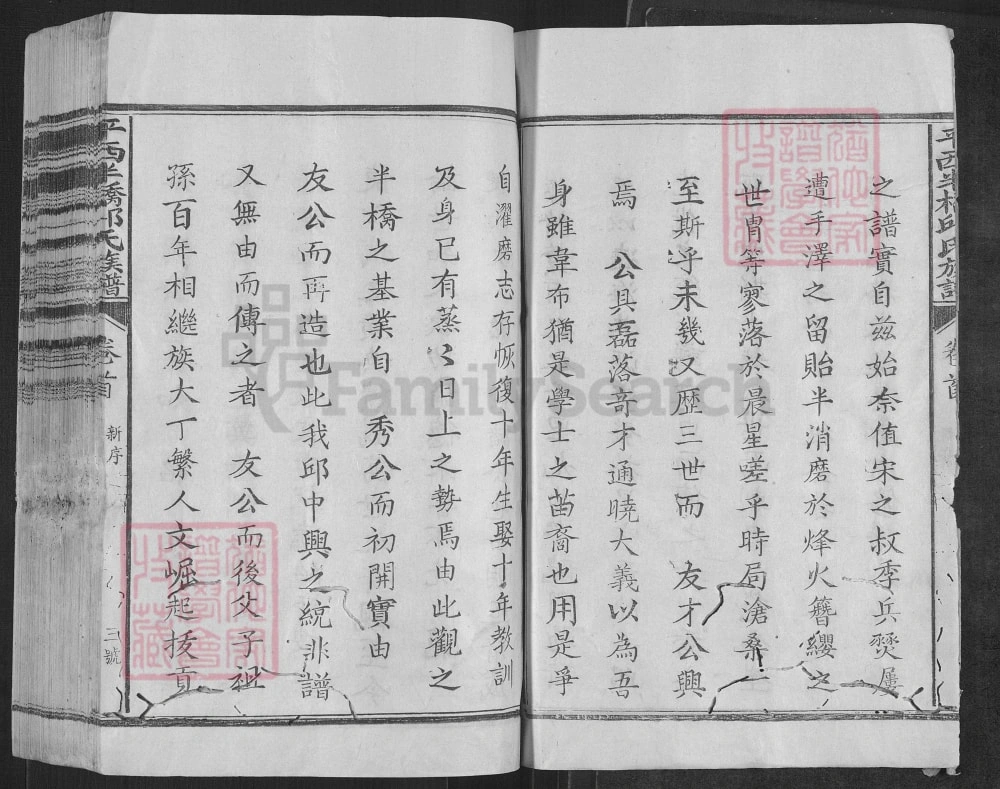 之譜實自茲始奈值宋之叔季兵燹屢
遭手澤之留貽半消磨於烽火簪纓之
世冑等寥落於晨星嗟乎時局滄桑一
至斯乎未幾又歷三世而 友才公興
焉 公具磊落奇才通曉大義以為吾
身雖韋布猶是學士之苗裔也用是爭
自濯磨志存恢復十年生娶十年教訓
及身已有蒸〻日上之勢焉由此觀之
半橋之基業自 秀公而初開實由
友公而再造也此我邱中興之統非譜
又無由而傳之者 友公而後父子祖
孫百年相繼族大丁繁人文崛起拔貢
平西半橋邱氏族譜
卷首
新序
三號
平西半橋邱氏族譜
卷首
FamilySearch